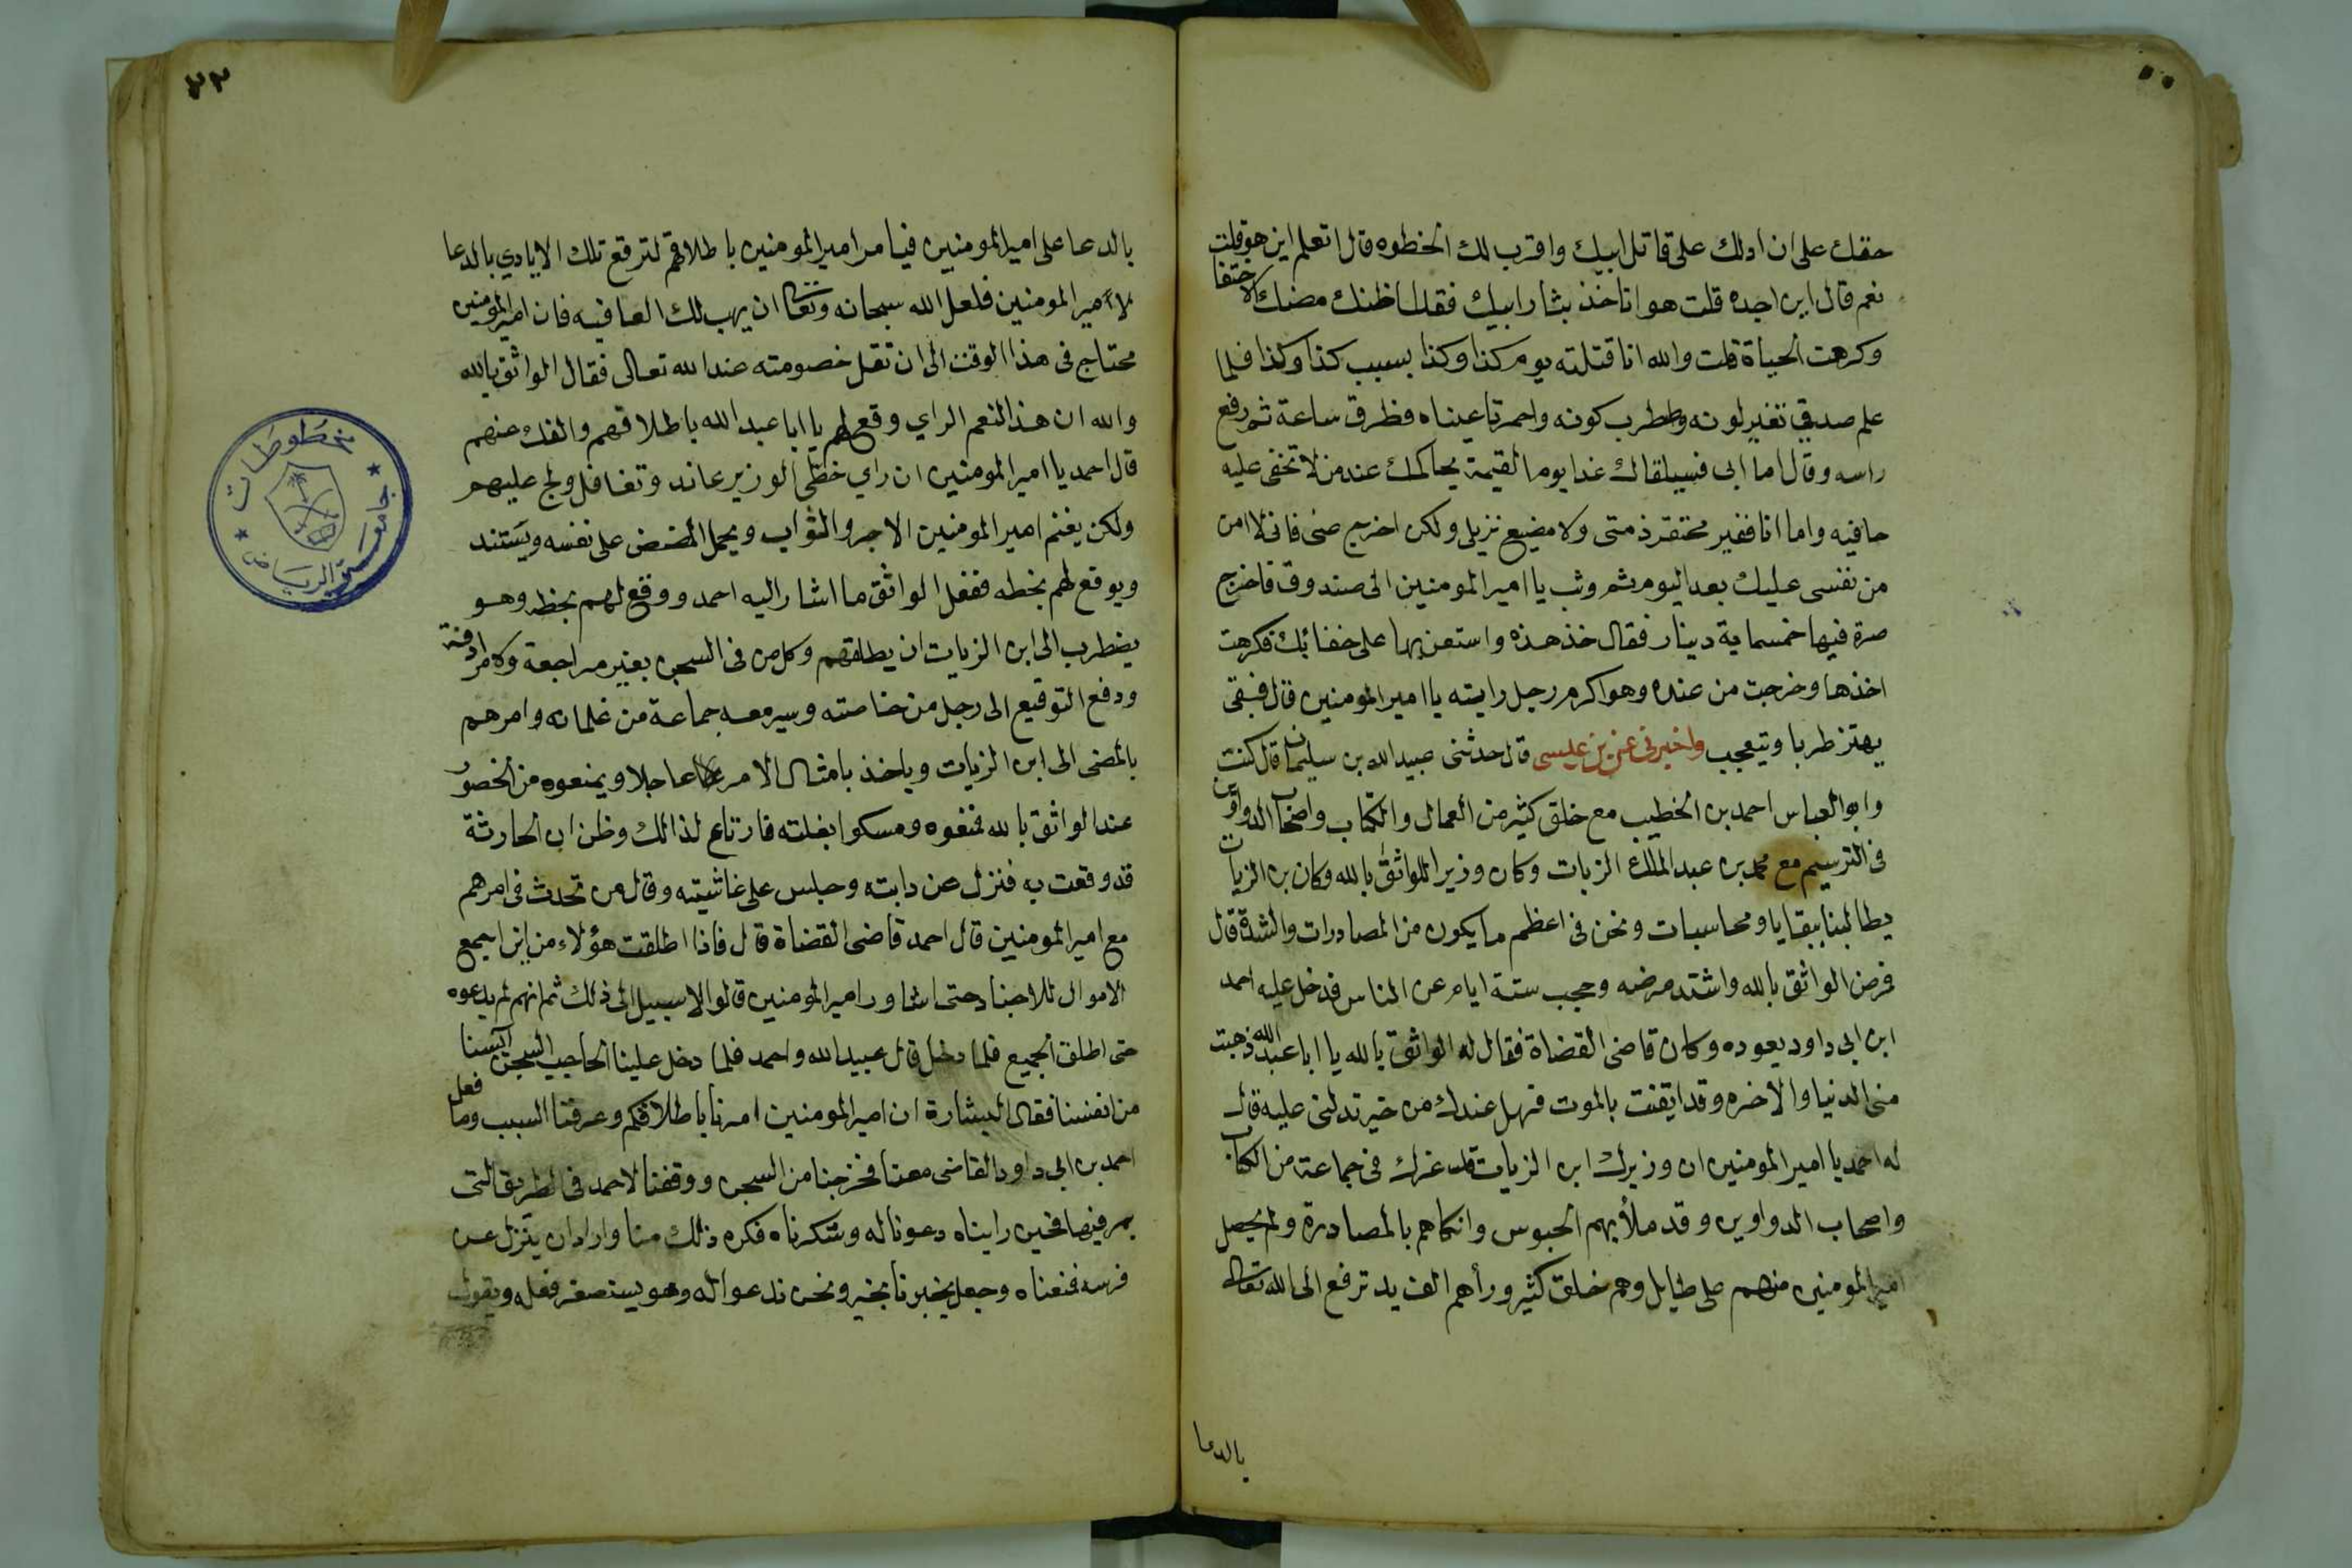 حقك على ان ادلك على قاتل ابيك واقرب لك الخطوه قال اتعلم اين هو قلت
نعم قال اين اجده قلت هو انا خذ بثار ابيك فقال اظنك مضك الاختفا
وكرهت الحياة قلت والله انا قتلته يوم كذا وكذا بسبب كذا وكذا فلما
علم صدقي تغير لونه واطرب كونه واحمرتا عيناه فطرق ساعة ثم رفع
راسه وقال اما ابى فسيلقاك غدا يوم القيمة يحاكمك عند من لا تخفى عليه
خافيه واما انا فغير مخنقر ذمتى ولا مضيع نزيلى ولكن اخرج عنى فانى لا امن
من نفسى عليك بعد اليوم ثم وثب يا امير المومنين الى صندوق فاخرج
صرة فيها خمسماية دينار فقال خذ هذه واستعن بها على خفائك فكرهت
اخذها وخرجت من عنده وهو اكرم رجل رايته يا امير المومنين قال فبقى
يهتز طربا ويتعجب واخبرنى عن بن عيسى قال حدثنى عبيد الله بن سليمان قال كنت
وابو العباس احمد بن الخطيب مع خلق كثير من العمال والكتاب واصحاب الدواوين
فى الترسيم مع محمد بن عبد الملك الزيات وكان وزيرا للواثق بالله وكان بن الزيات
يطالبنا ببقايا ومحاسبات ونحن فى اعظم ما يكون من المصادرات والشدة قال
فمرض الواثق بالله واشتد مرضه وحجب ستة ايام عن الناس فدخل عليه احمد
ابن ابى داود يعوده وكان قاضى القضاة فقال له الواثق بالله يا ابا عبد الله ذهبت
منى الدنيا والاخره وقد ايقنت بالموت فهل عندك من خير تدلنى عليه قال
له احمد يا امير المومنين ان وزيرك ابن الزيات قد غرك فى جماعة من الكتاب
واصحاب الدواوين وقد ملأ بهم الحبوس وانكاهم بالمصادرة ولم يحصل
امير المومنين منهم على طايل وهم خلق كثير ورأهم الف يد ترفع الى الله تعالى
بالدعا
٢٢
بالدعا على امير المومنين فيامر امير المومنين باطلاقهم لترفع تلك الايادي بالدعا
لأمير المومنين فلعل الله سبحانه وتعالى ان يهب لك العافيه فان امير المومنين
محتاج فى هذا الوقت الى ان تقل خصومته عند الله تعالى فقال الواثق بالله
والله ان هذا لنعم الراي وقع لهم يا ابا عبد الله باطلاقهم والفك عنهم
قال احمد يا امير المومنين ان راي خطى الوزير عاند وتغافل ولج عليهم
ولكن يغنم امير المومنين الاجر والثواب ويحمل المضض على نفسه ويستند
ويوقع لهم بخطه ففعل الواثق ما اشار اليه احمد ووقع لهم بخطه وهو
يضطرب الى ابن الزيات ان يطلقهم وكل من فى السجن بغير مراجعة ولا مرادفة
ودفع التوقيع الى رجل من خاصته وسير معه جماعة من غلمانه وامرهم
بالمضى الى ابن الزيات وياخذ بامثال الامر عاجلا ويمنعوه من الحضور
عند الواثق بالله فمنعوه ومسكوا بغلته فارتاع لذالك وظن ان الحارثة
قد وقعت به فنزل عن دابته وجلس على غاشيته وقال من تحدث فى امرهم
مع امير المومنين قال احمد قاضى القضاة قال فاذا اطلقت هؤلاء من اين اجمع
الاموال للاجناد حتى اشاور امير المومنين قالوا لا سبيل الى ذلك ثم انهم لم يدعوه
حتى اطلق الجميع فلما دخل قال عبيد الله واحمد فلما دخل علينا الحاجب السجن آيسنا
من انفسنا فقال البشارة ان امير المومنين امرنا باطلاقكم وعرفنا السبب وما فعل
احمد بن ابى داود القاضى معنا فخرجنا من السجن ووقفنا لاحمد فى الطريق التى
يمر فيها فحين رايناه دعونا له وشكرناه فكره ذلك منا واراد ان ينزل عن
فرسه فمنعناه وجعل يخبرنا بخبر ونحن ندعوا له وهو يستصغر فعله ويقول
مخطوطات
جامعة الرياض